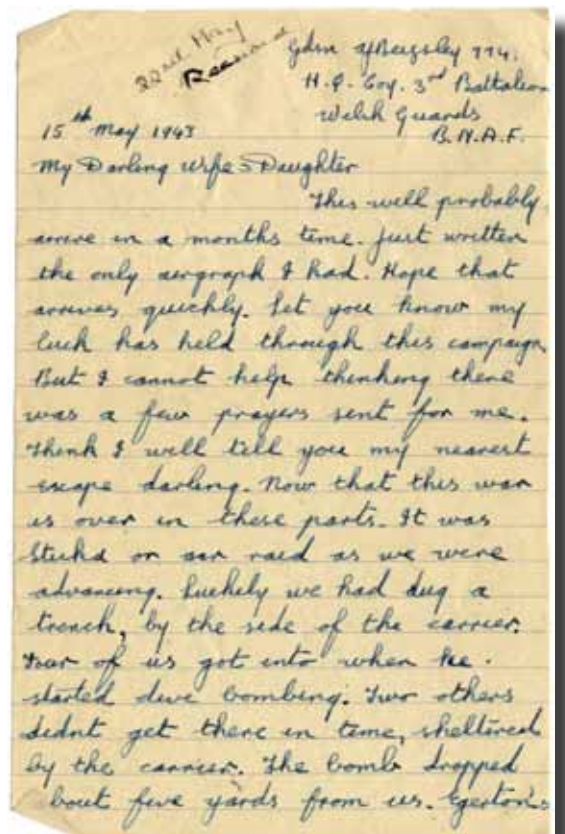 22nd May
Received
Gdsn 774.
H.Q. Coy. 3rd Battalion
Welsh Guards
15th May 1943 B.N.A.F.
My Darling Wife & Daughter
This will probably
arrive in a months time. Just written
the only airgraph I had. Hope that
arrives quickly. Let you know my
luck has held through this campaign
But I cannot help thinking there
was a few prayers sent for me.
Think I will tell you my nearest
escape darling. Now that this war
is over in these parts. It was
Stuka or air raid as we were
advancing. Luckily we had dug a
trench, by the side of the carrier.
Four of us got into when he.
started dive bombing. Two others
didnt get there in time, sheltered
by the carrier. The bomb dropped
bout five yards from us. Egerton's